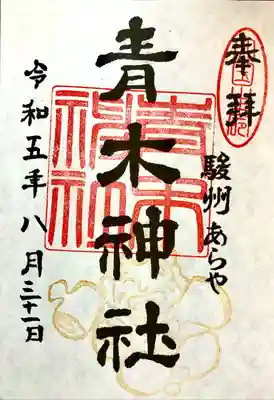 奉拝
駿州あらや
青木神社
青木神社
令和五年八月三十一日